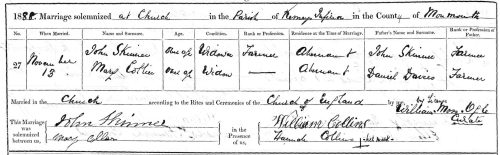 188 Marriage solemnized at Church in the Parish of Kemeys Inferior in the County of Monmouth
No. When Married. Name and Surname. Age. Condition. Rank or Profession. Residence at the Time of Marriage. Father's Name and Surname. Rank or Profession of Father.
27 November 13 John Skinner of age Widower Farmer John Skinner Farmer
Mary of age Widow — Daniel Davies Farmer
Married in the Church according to the Rites and Ceremonies of the Church of England by me
William Curate
This Marriage was solemnized between us John Skinner
Mary
in the Presence of us William Collins
Hannah Collins her mark